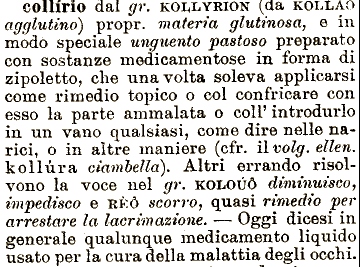 collírio dal gr. KOLLYRION (da KOLLAÔ
agglutino) propr. materia glutinosa, e in
modo speciale unguento pastoso preparato
con sostanze medicamentose in forma di
zipoletto, che una volta soleva applicarsi
come rimedio topico o col confricare con
esso la parte ammalata o coll' introdurlo
in un vano qualsiasi, come dire nelle na-
rici, o in altre maniere (cfr. il volg. ellen.
kollúra ciambella). Altri errando risol-
vono la voce nel gr. KOLOUÔ diminuisco,
impedisco e RÈÔ scorro, quasi rimedio per
arrestare la lacrimazione. — Oggi dicesi in
generale qualunque medicamento liquido
usato per la cura della malattia degli occhi.